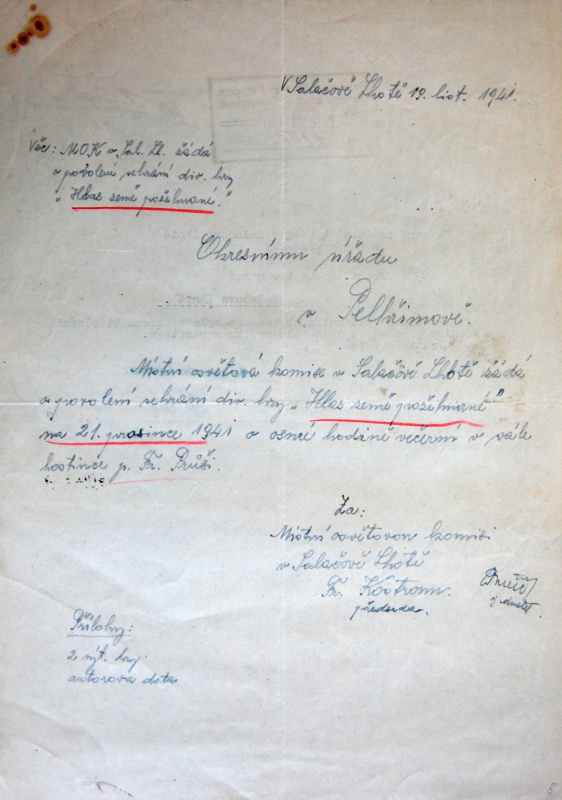 V Salačově Lhotě 19. list. 1941.
Věc: MOK v Sal. Lh. žádá
o povolení sehrání div. hry
"Hlas země požehnané."
Okresnímu úřadu
v Pelhřimově.
Místní osvětová komise v Salačově Lhotě žádá
o povolení sehrání div. hry "Hlas země požehnané"
na 21. prosince 1941 o osmé hodině večerní v sále
hostince p. Fr. Průši.
Za:
Místní osvětovou komisi
v Salačově Lhotě
Fr. Kostroun.
předseda.
jednatel.
Přílohy:
2 výt. hry
autorova data
5